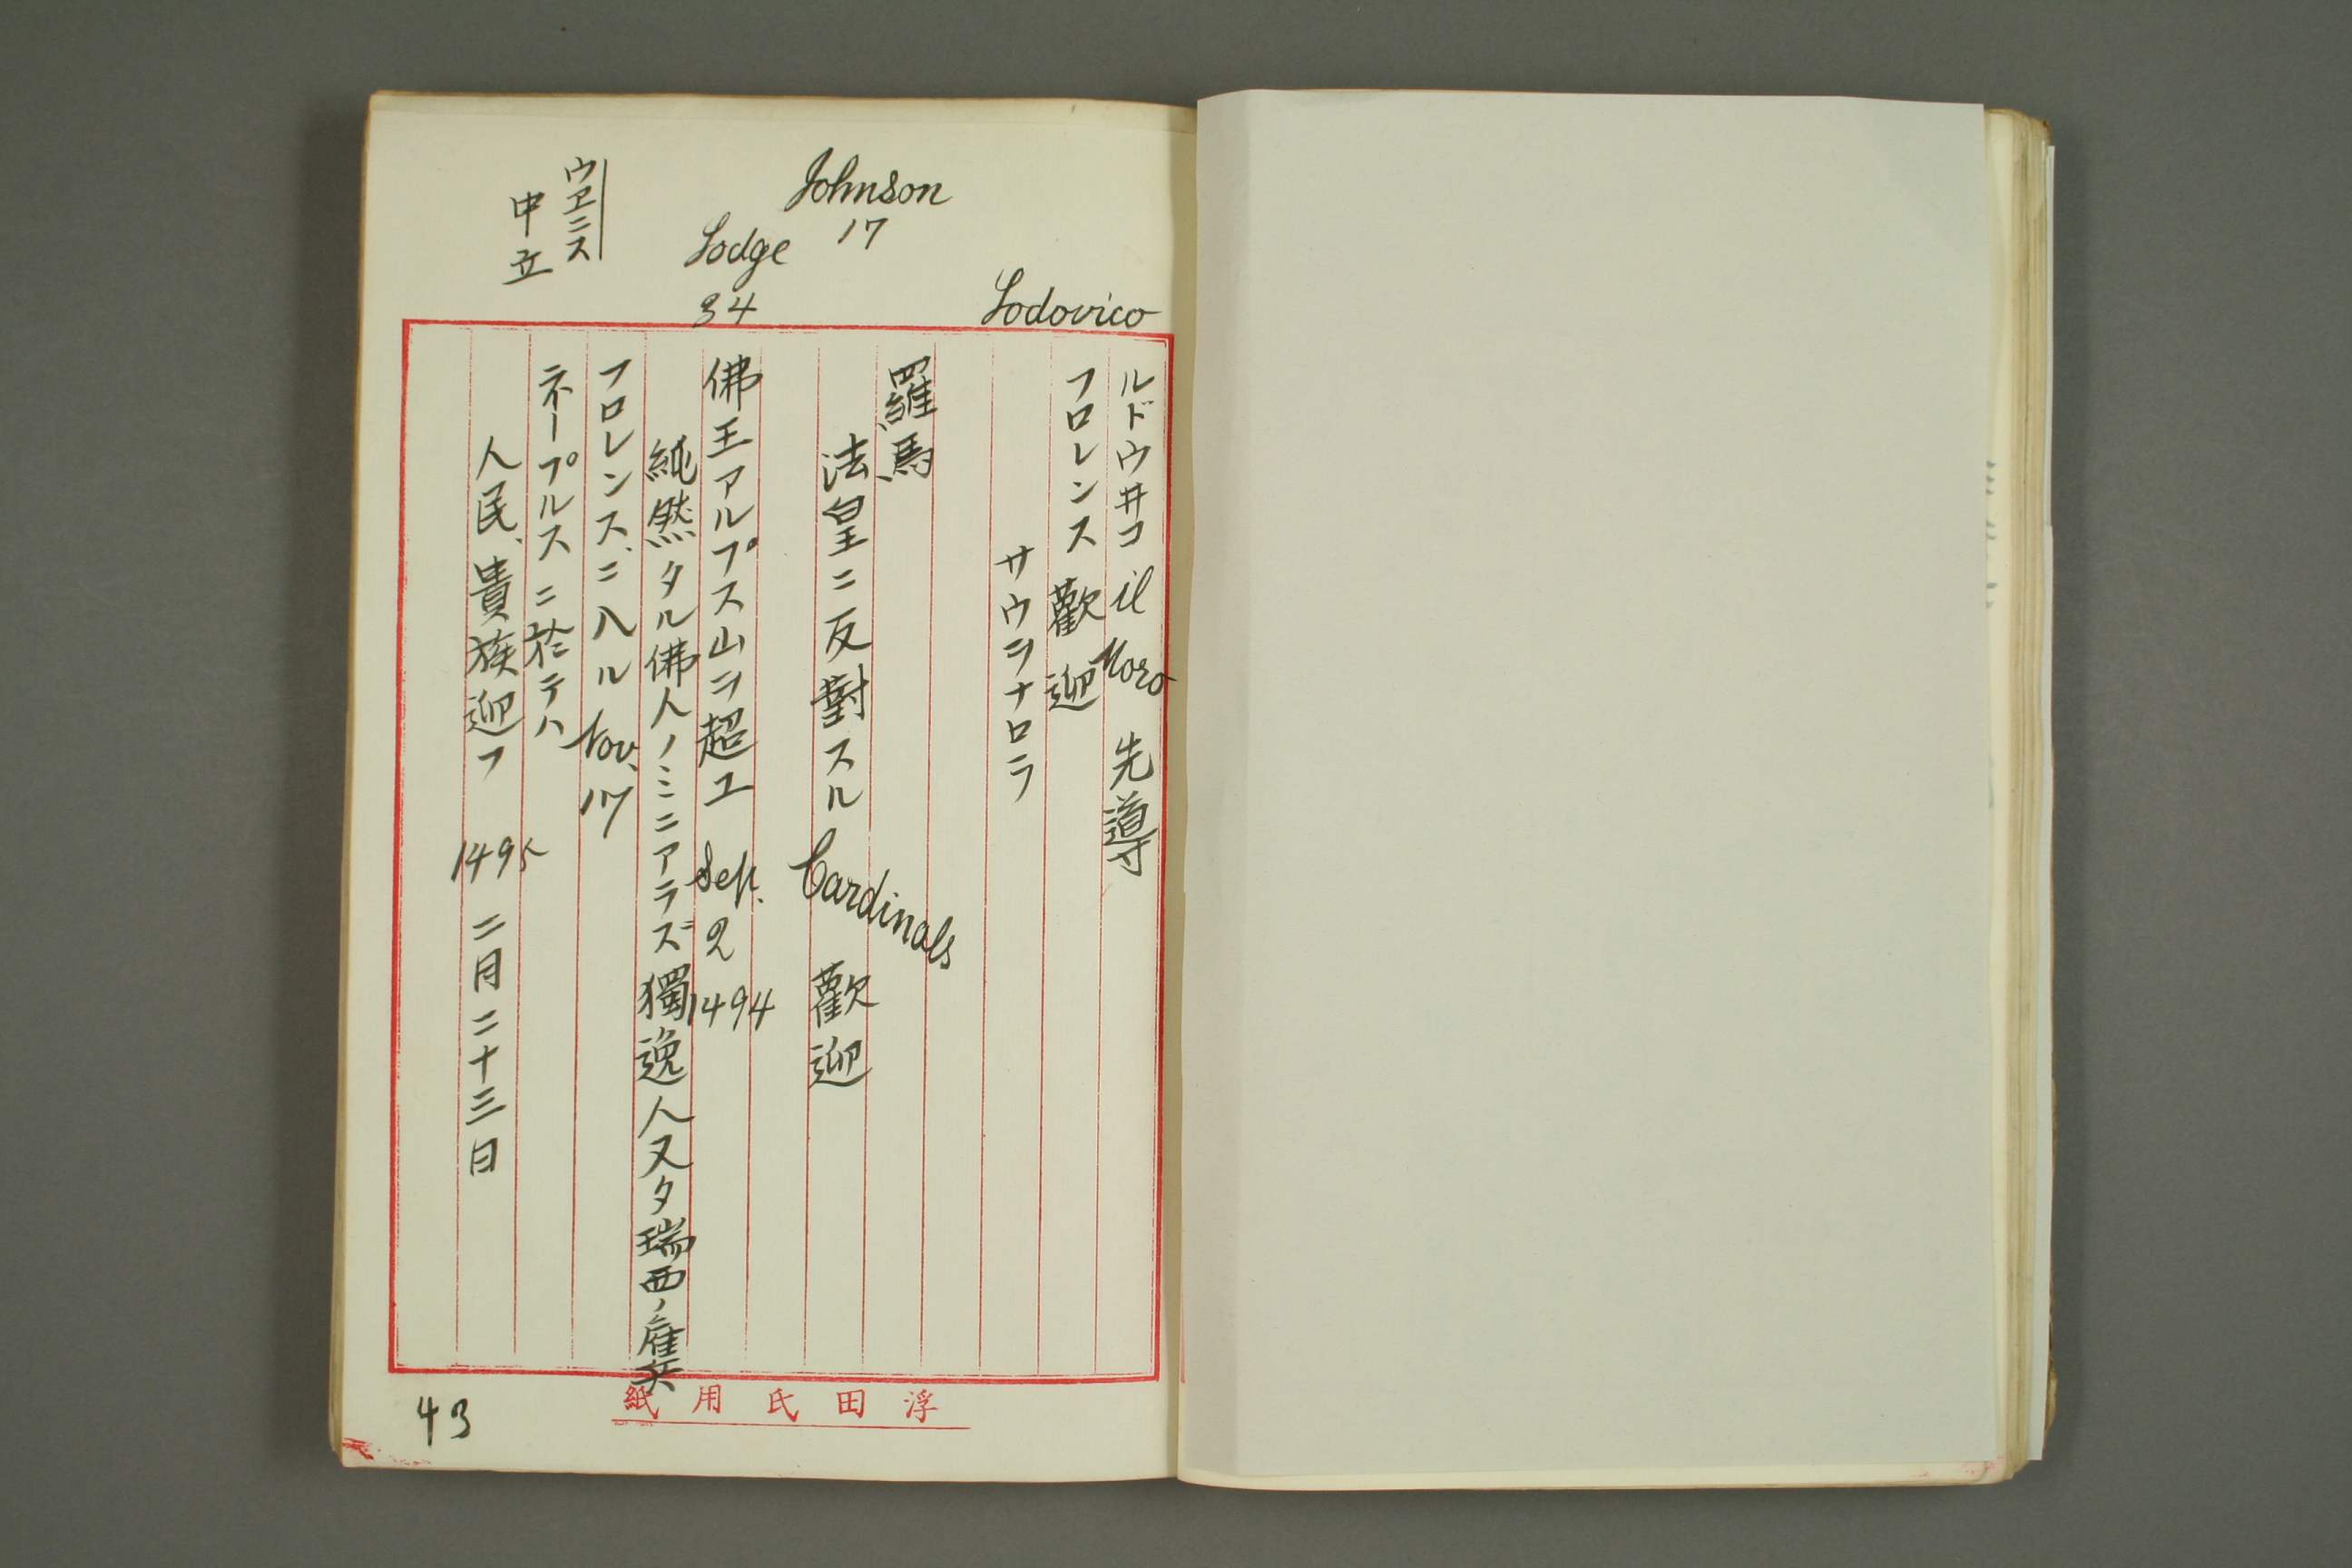 Lodovico
Johnson
17
Lodge
34
ウヱニス
中立
ルドウヰコ il Moro 先導
フロレンス 歡迎
サウヲナロラ
羅馬
法皇ニ反對スル Cardinals 歡迎
佛王アルプス山ヲ超ユ Sep. 2 1494
純然タル佛人ノミニアラズ 獨逸人又タ瑞西ノ雇兵
フロレンスニ入ル Nov. 17
ネープルスニ於テハ
人民、貴族迎フ 1495 二月二十三日
浮田氏用紙
43